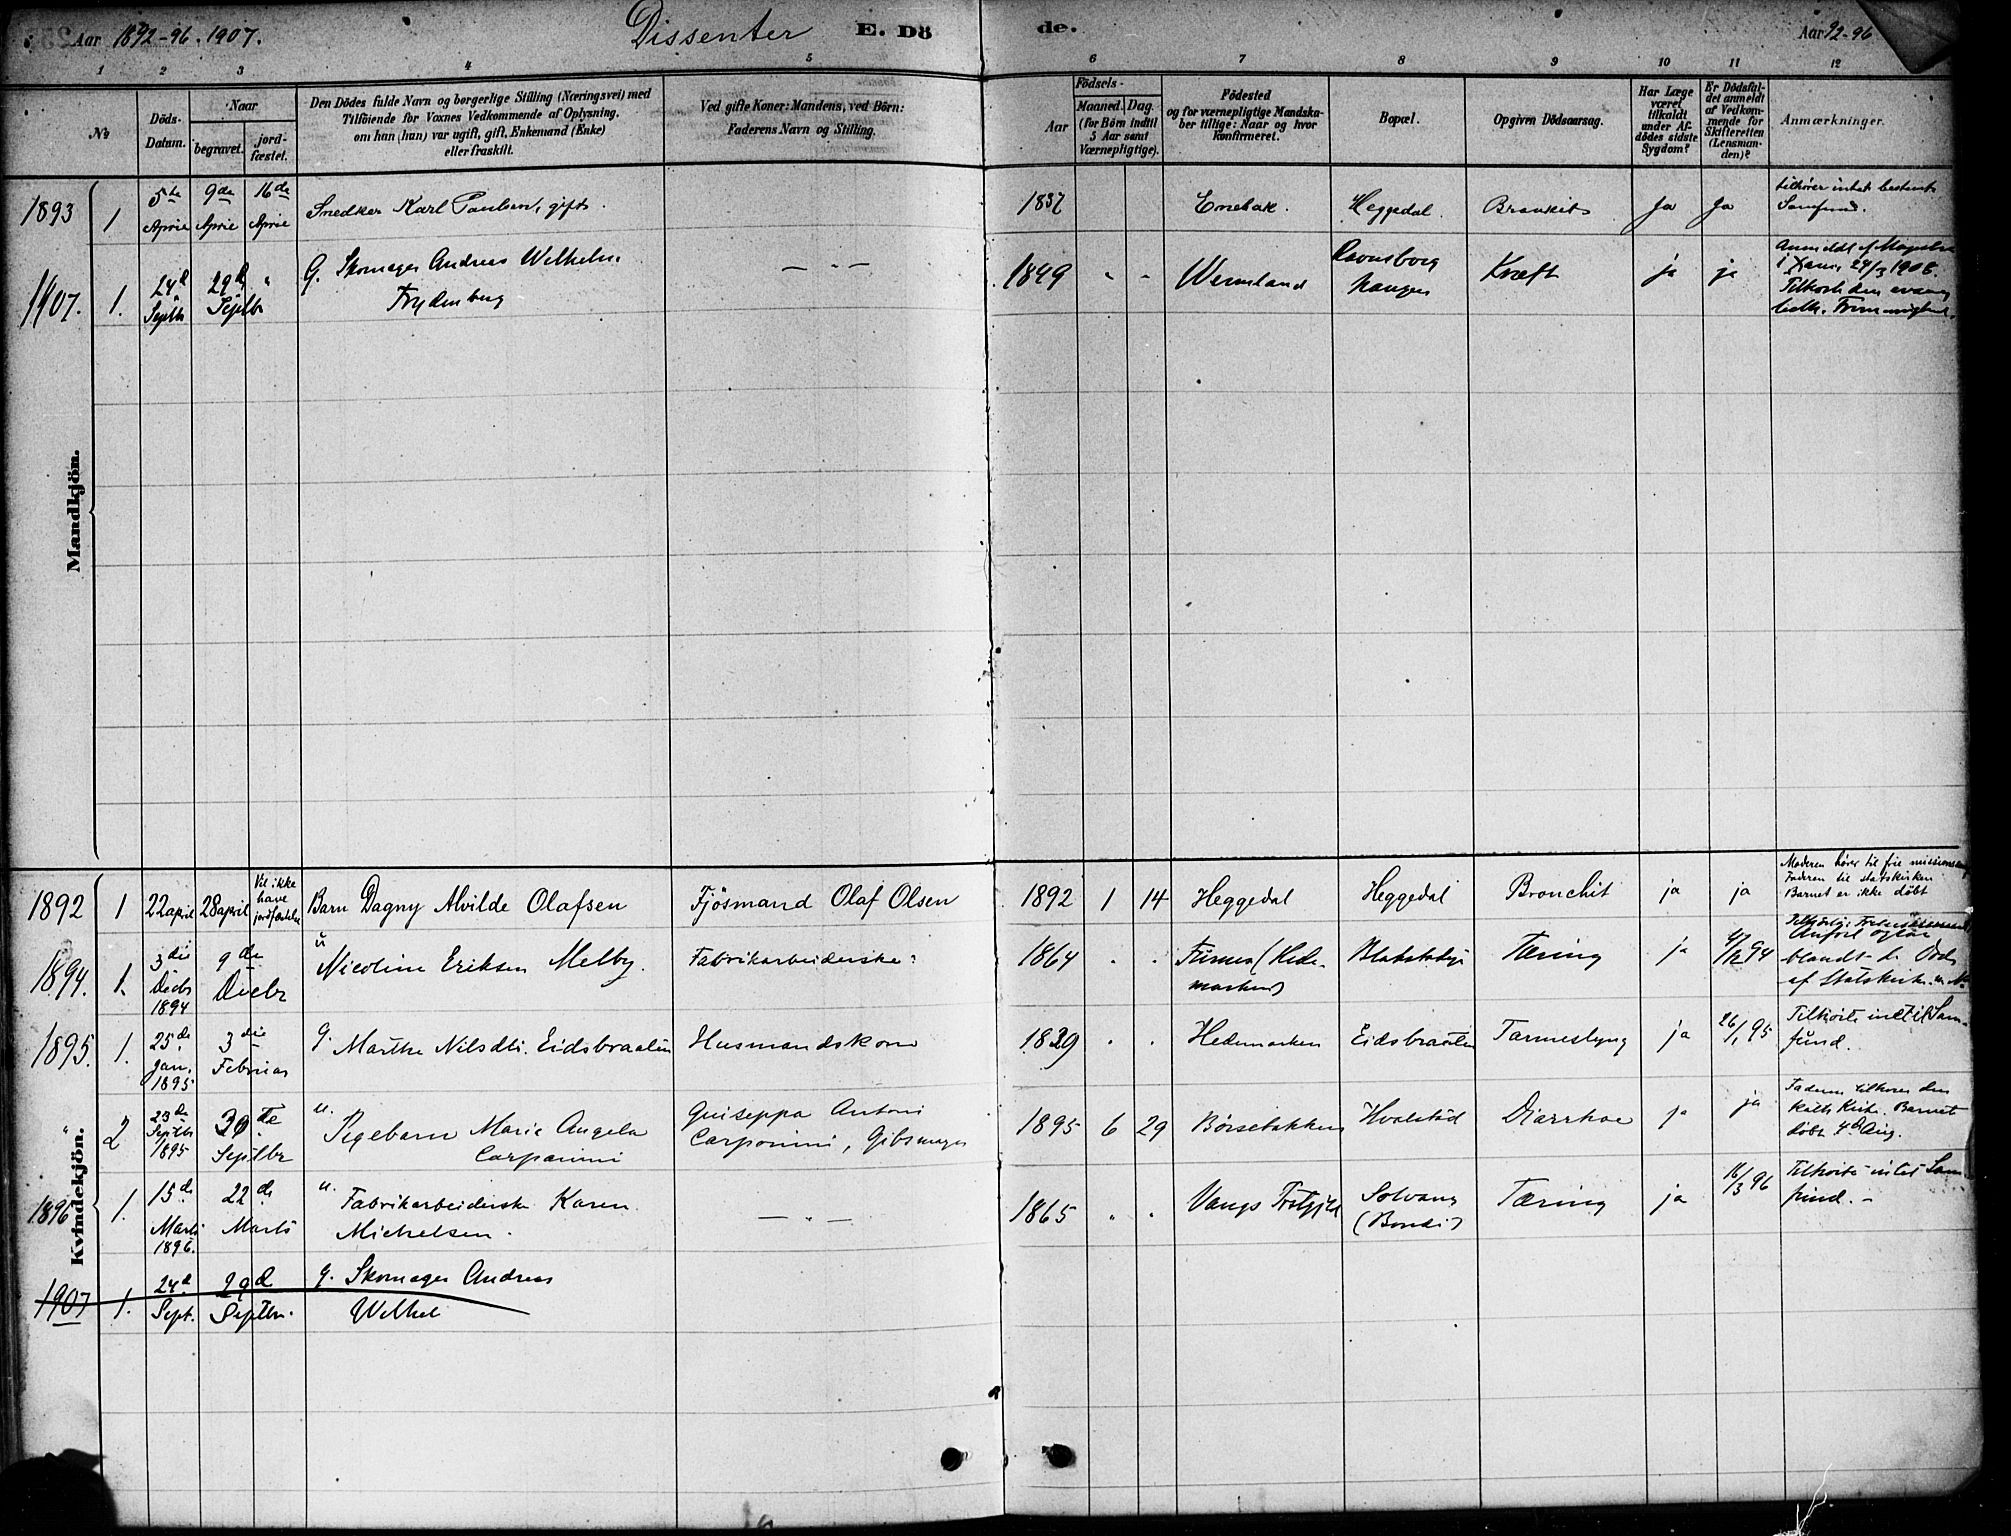 Aar 1892-96. 1907.
Dissenter E. Dö
de.
Aar 92-96
1 2 3 4 5 6 7 8 9 10 11 12
No
Döds-Datum.
Naar
begravet.
jord-fæstet.
Den Dödes fulde Navn og borgerlige Stilling (Næringsvei) med
Tilföiende for Voxnes Vedkommende af Oplysning,
om han (hun) var ugift, gift, Enkemand (Enke)
eller fraskilt.
Ved gifte Koner: Mandens, ved Börn:
Faderens Navn og Stilling.
Födsels-
Aar
Maaned. Dag.
(for Börn indtil
5 Aar samt
Værnepligtige).
Födested
og for værnepligtige Mandska-
ber tillige: Naar og hvor
konfirmeret.
Bopæl.
Opgiven Dödsaarsag.
Har Læge
været
tilkaldt
under Af-
dödes sidste
Sygdom?
Er Dödsfal-
det anmeldt
af Vedkom-
mende for
Skifteretten
(Lensman-
den)?
Anmærkninger.
Mandkjön.
1893 1 5te April 9de April 16de April Snedker Karl Paulsen, gift. 1837 Enebak. Heggedal. Bronkit Ja Ja tilhører intet bestemt
Samfund.
1907. 1. 24d Septbr 29d Septbr " G. Skomager Andreas Wilhelm
Frydenberg — " — 1849 " " Wermland Ravnsborg
Haugen Kræft ja ja Anmeldt af
i 24/3 1908.
Kvindekjön.
1892 1 22 april 28 april Vil ikke
have
jordfæstelse Barn Dagny Alvilde Olafsen Fjösmand Olaf Olsen 1892 1 14 Heggedal Heggedal Bronchit ja ja Moderen hører til frie mission
Faderen til statskirken
Barnet er ikke döbt
1894. 1. 3die Decbr 1894 9de Decbr u Nicoline Eriksen Melby. Fabrikarbeiderske 1864 . . (Hede-
marken) Tæring ja 4/12 94
blandt de Døde
af Statskirken
1895. 1. 25de Jan. 1895 3die Februar g. Marthe Nilsdtr. Eidsbraaten Husmandskone 1829 . . Hedemarken Eidsbraaten Tarmeslyng ja 26/1 95 Tilhørte intet Sam-
fund.
" 2 23de Septbr 1895 30te Septbr u. Pigebarn Marie Angela
Carponini Guiseppa Antoni
Carponini, Gibsmager 1895 6 29 Børsebakken Hvalstad Diarrhoe ja ja Faderen tilhører den
kath Kirke. Barnet
døbt 4de Aug.
1896 1. 15de Marts 1896. 22de Marts u. Fabrikarbeiderske Karen
Michelsen. — " — 1865 " . Vangs Prstgjld Solvang
(Bondi) Tæring ja 16/3 96 Tilhørte intet Sam
fund. -
1907 1. 24d Sept. 29d Septbr. g. Skomager Andreas
Wilhel